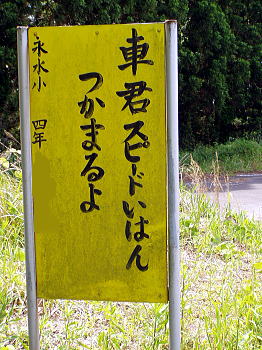 車君スピードいはん
つかまるよ
永水小 四年